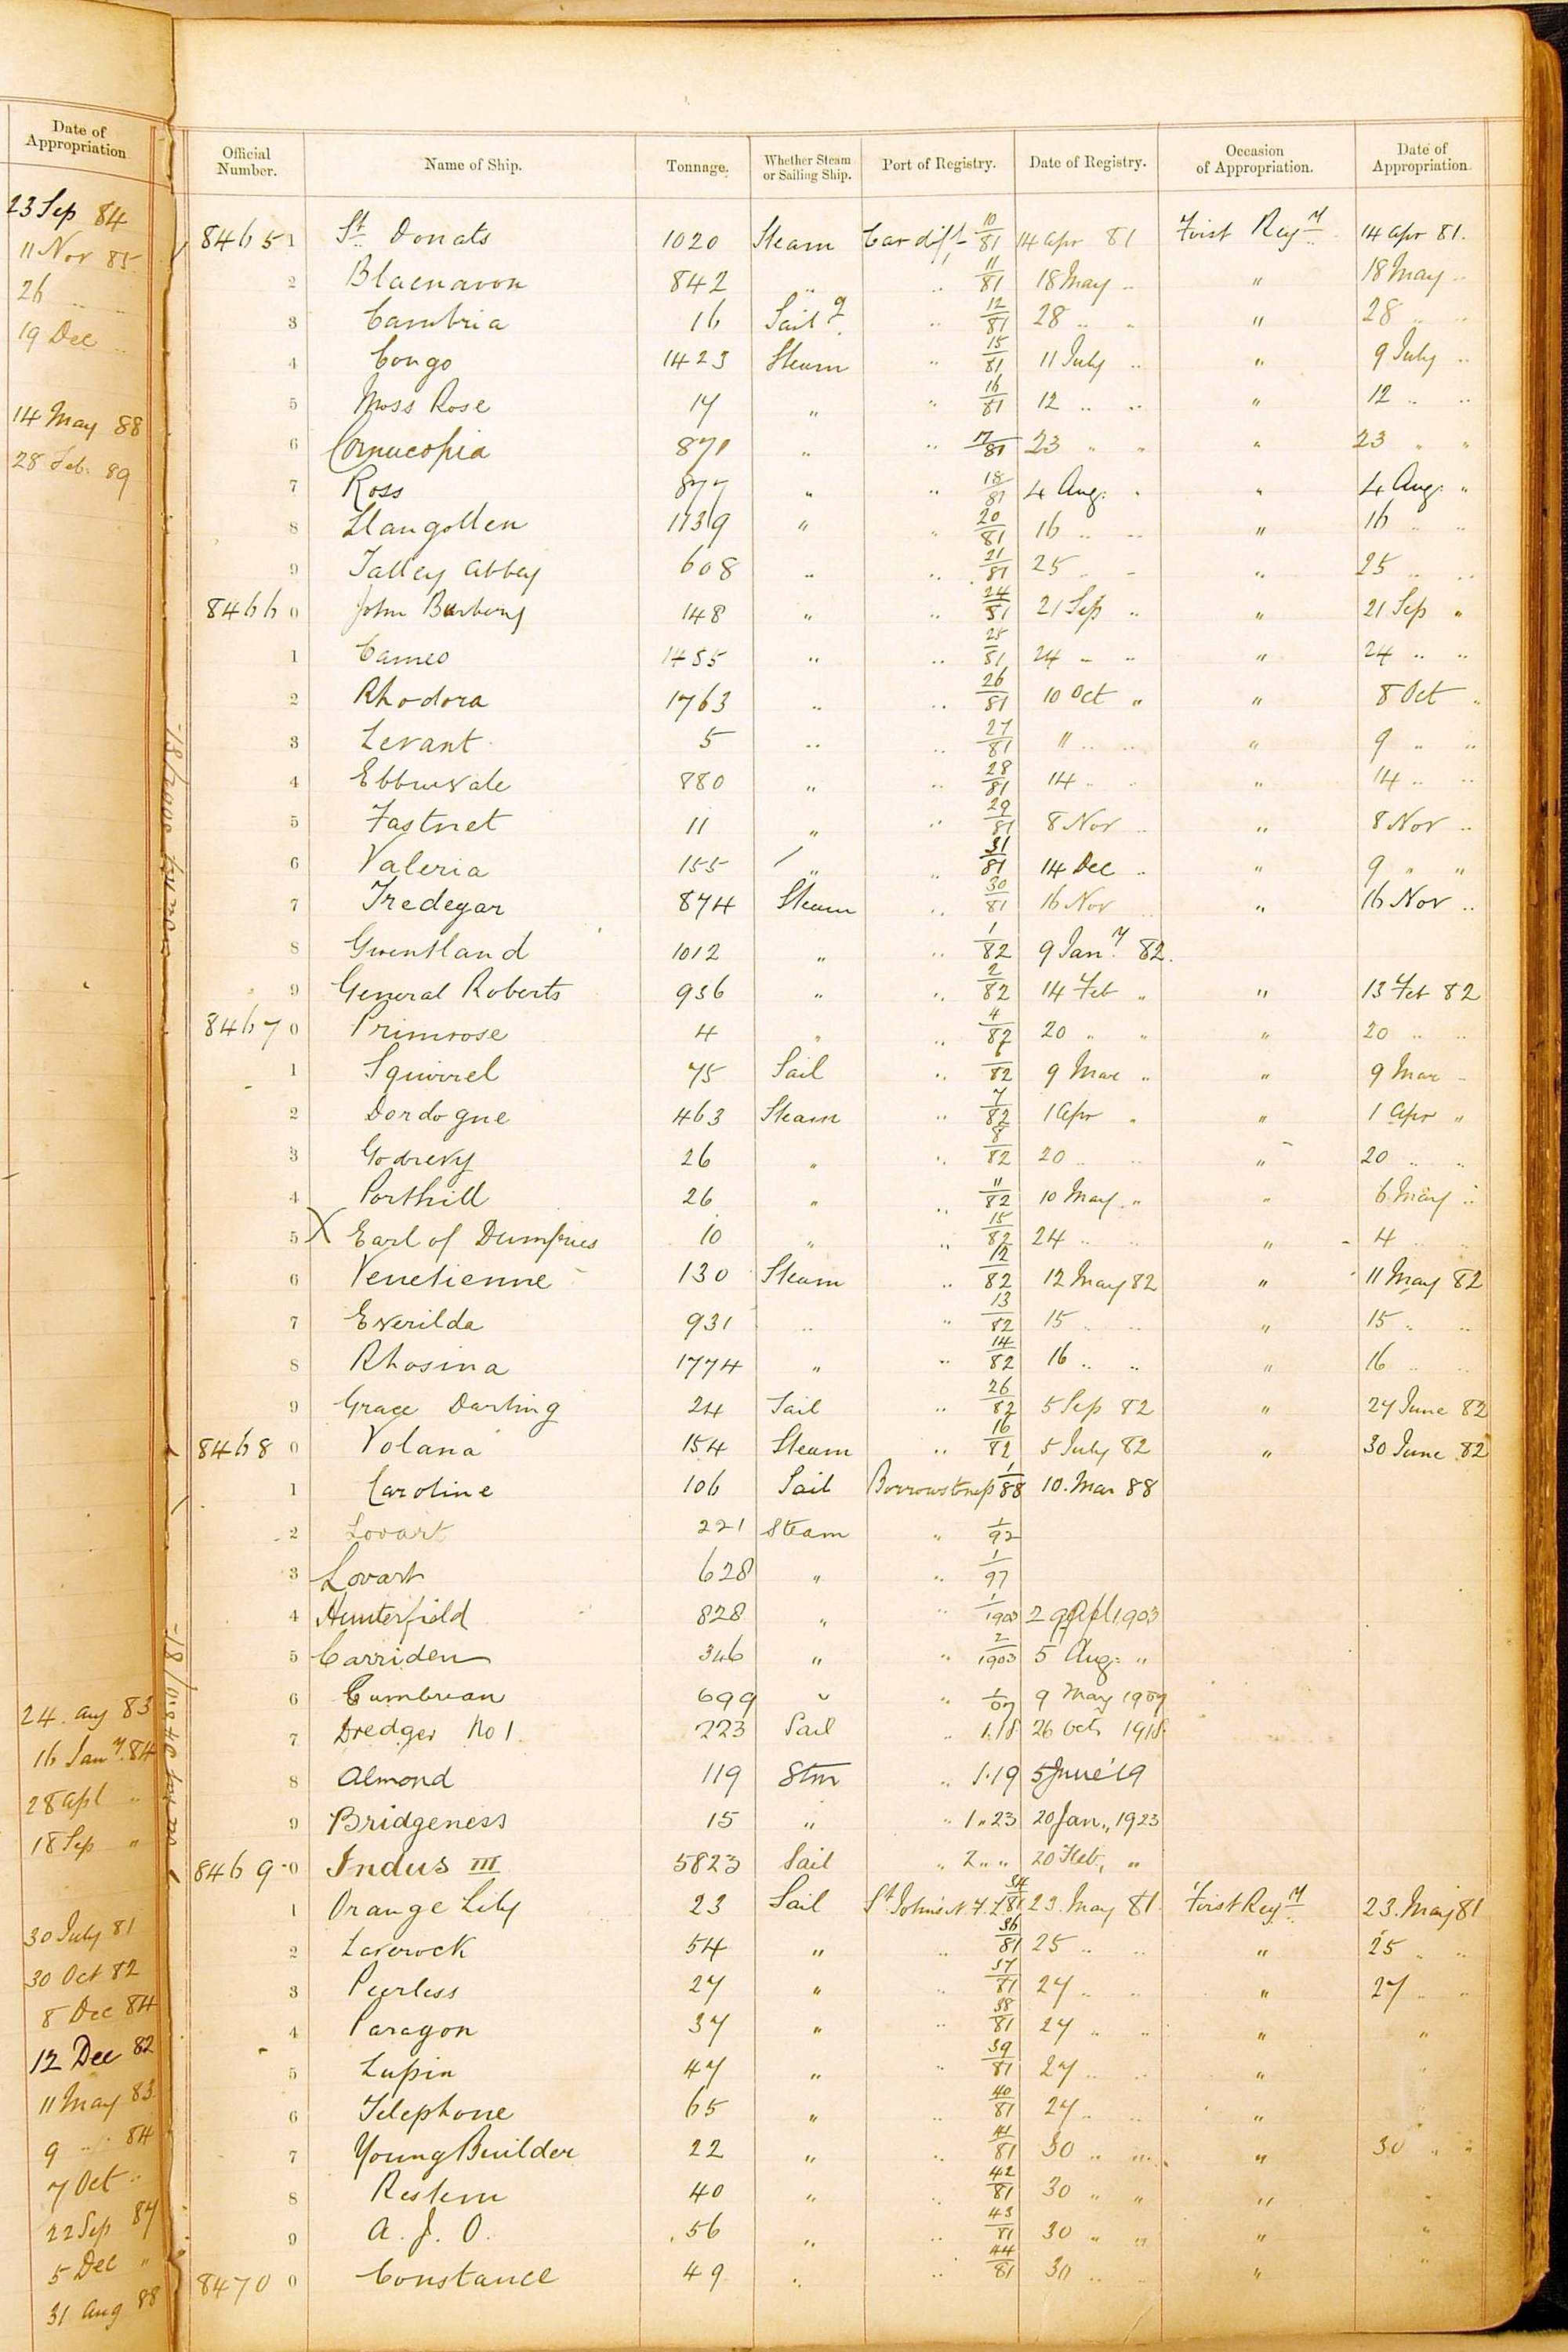 Date of
Appropriation
23 Sep 84
11 Nov 85
26 .. ..
19 Dec ..
14 May 88
28 Feb. 89
24. Aug 83
16 Jany. 84
28 Apl ..
18 Sep "
30 July 81
30 Oct 82
8 Dec 84
12 Dec 82
11 May 83
9 .. 84
7 Oct ..
22 Sep 87
5 Dec "
31 Aug 88
Official Number. Name of Ship. Tonnage. Whether Steam or Sailing Ship. Port of Registry. Date of Registry. Occasion of Appropriation. Date of Appropriation.
84651 St. Donats 1020 Steam Cardiff 10/81 14 Apr 81 First Regy 14 Apr 81.
2 Blaenavon 842 .. .. 11/81 18 May .. " 18 May ..
3 Cambria 16 Sailg .. 12/81 28 .. .. " 28 .. ..
4 Congo 1423 Steam .. 15/81 11 July .. " 9 July ..
5 Moss Rose 14 " .. 16/81 12 .. .. " 12 .. ..
6 Cornucopia 871 .. .. 17/81 23 " " " 23 " "
7 Ross 877 " .. 18/81 4 Aug. " " 4 Aug. "
8 Llangollen 1139 " .. 20/81 16 .. .. " 16 .. ..
9 Talley Abbey 608 .. .. 21/81 25 .. .. " 25 .. ..
84660 John Burberry 148 " .. 24/81 21 Sep .. " 21 Sep "
1 Cameo 1455 " .. 25/81 24 .. .. " 24 .. ..
2 Rhodora 1763 .. .. 26/81 10 Oct " " 8 Oct ..
3 Levant 5 .. .. 27/81 11 .. .. " 9 .. ..
4 Ebbwvale 880 " .. 28/81 14 .. .. " 14 .. ..
5 Fastnet 11 " .. 29/81 8 Nov .. " 8 Nov ..
6 Valeria 155 " .. 31/81 14 Dec .. " 9 " "
7 Tredegar 874 Steam .. 30/81 16 Nov .. " 16 Nov ..
8 Gwentland 1012 " .. 1/82 9 Jany. 82.
9 General Roberts 936 " .. 2/82 14 Feb " " 13 Feb 82
84670 Primrose 4 " .. 4/82 20 " " " 20 .. ..
1 Squirrel 75 Sail .. 6/82 9 Mar .. " 9 Mar ..
2 Dordogne 463 Steam .. 7/82 1 Apr .. " 1 Apr "
3 Godrevy 26 " .. 8/82 20 .. .. " 20 .. ..
4 Porthill 26 " .. 11/82 10 May .. " 6 May ..
5 X Earl of Dumfries 10 " .. 15/82 24 .. .. " 4 .. ..
6 Venetienne 130 Steam .. 12/82 12 May 82 " 11 May 82
7 Everilda 931 .. .. 13/82 15 .. .. " 15 .. ..
8 Rhosina 1774 " .. 14/82 16 .. .. " 16 .. ..
9 Grace Darling 24 Sail .. 26/82 5 Sep 82 " 27 June 82
84680 Volana 154 Steam .. 16/82 5 July 82 " 30 June 82
1 Caroline 106 Sail 1/88 10. Mar 88
2 Lovart 221 Steam " 1/92
3 Lovart 628 " " 1/97
4 Hunterfield 828 " " 1/1903 1903
5 Carriden 346 " " 2/1903 5 Aug. "
6 Cumbrian 699 " " 1/07 9 May 1907
7 Dredger No 1 223 Sail .. 1.18 26 Oct 1918
8 Almond 119 Stm .. 1.19 5 June '19
9 Bridgeness 15 " " 1..23 20 Jan., 1923
84690 Indus III 5823 Sail " 2.. " 20 Feb., "
1 Orange Lily 23 Sail St. John's N.F.L 34/81 23. May 81 First Regy 23. May 81
2 Laverock 54 " .. 36/81 25 .. .. " 25 .. ..
3 Peerless 27 " .. 37/81 27 .. .. " 27 .. ..
4 Paragon 37 " .. 38/81 27 .. .. " "
5 Lupin 47 " .. 39/81 27 .. .. " "
6 Telephone 65 " .. 40/81 27 .. .. " "
7 Young Builder 22 " .. 41/81 30 .. .. " 30 .. ..
8 " .. 42/81 30 " " " "
9 A. J. O. 56 " .. 43/81 30 " " " "
84700 Constance 49 .. .. 44/81 30 .. .. " "